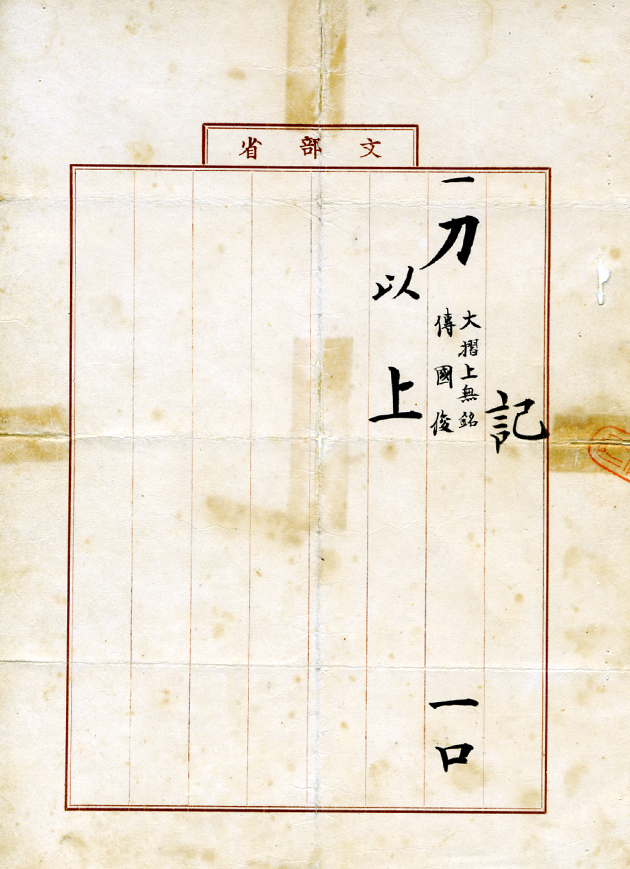 文部省
記
一刀
大摺上無銘
傳國俊
一口
以上